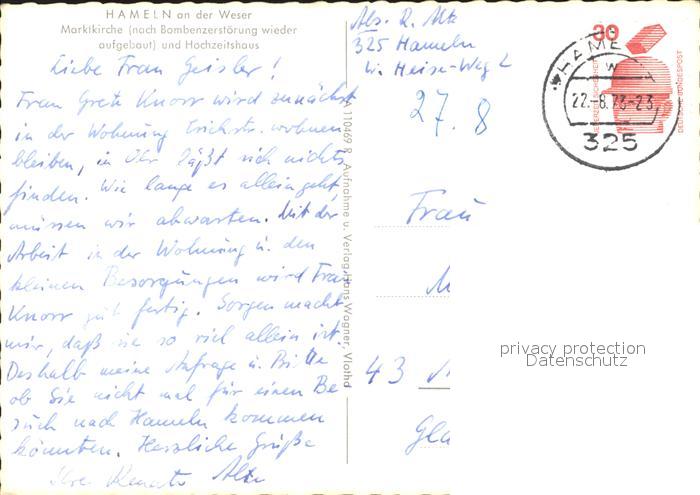 HAMELN an der Weser
Marktkirche (nach Bombenzerstörung wieder
aufgebaut) und Hochzeitshaus
Liebe Frau Geisler!
Frau Grete Knorr wird zunächst
in der Wohnung Erichstr. wohnen
bleiben, in Ohr läßt sich nichts
finden. Wie lange es allein geht,
müssen wir abwarten. Mit der
Arbeit in der Wohnung u. den
kleinen Besorgungen wird Frau
Knorr gut fertig. Sorgen macht
mir, daß sie so viel allein ist.
Deshalb meine Anfrage u. Bitte
ob Sie nicht mal für einen Be
such nach Hameln kommen
könnten. Herzliche Grüße
Ihre Renate
110469 R Aufnahme u. Verlag Hans Wagner, Vlotho
Abs. R.
325 Hameln
W. Heise-Weg 2
27. 8
Frau
43
Gla
30
DEUTSCHE BUNDESPOST
HAMELN
22.-8.73-23
325
privacy protection
Datenschutz